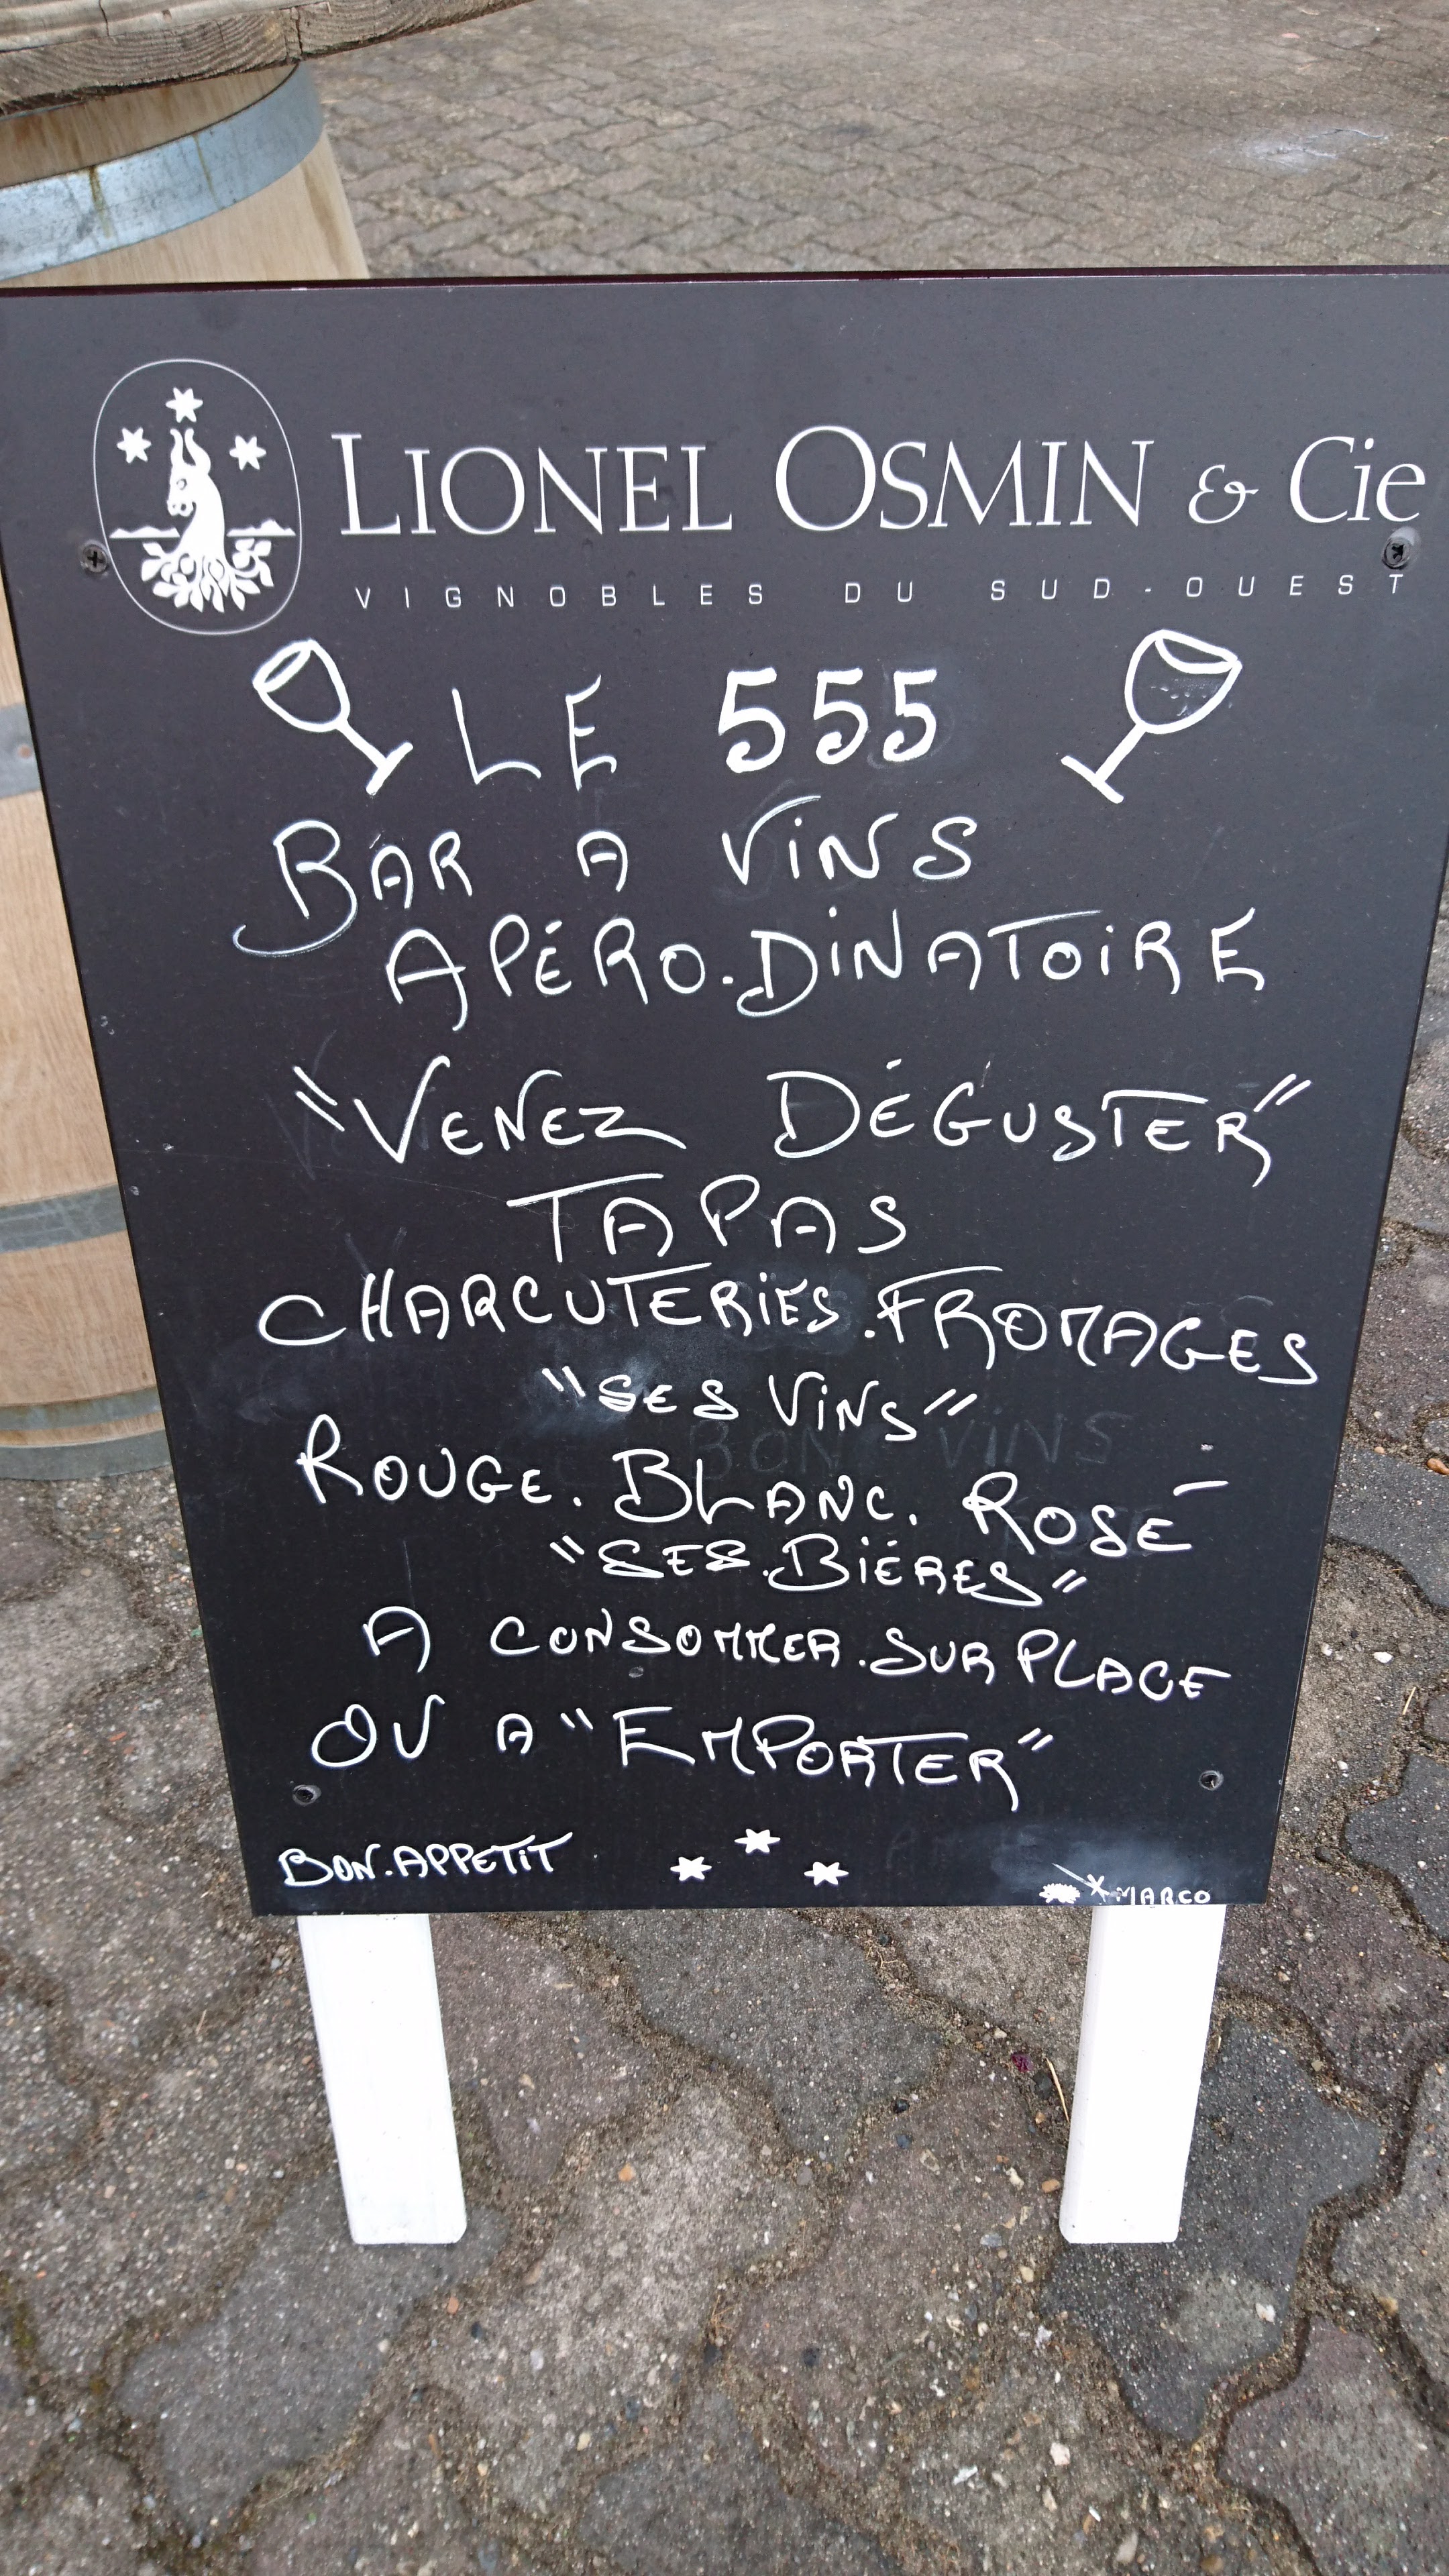 LIONEL OSMIN & Cie
VIGNOBLES DU SUD-OUEST
LE 555
BAR A VINS
APÉRO.DINATOIRE
"VENEZ DÉGUSTER"
TAPAS
CHARCUTERIES.FROMAGES
"SES VINS"
ROUGE. BLANC. ROSÉ
"SES.BIÈRES"
A CONSOMMER.SUR PLACE
OU A "EMPORTER"
BON.APPETIT
MARCO